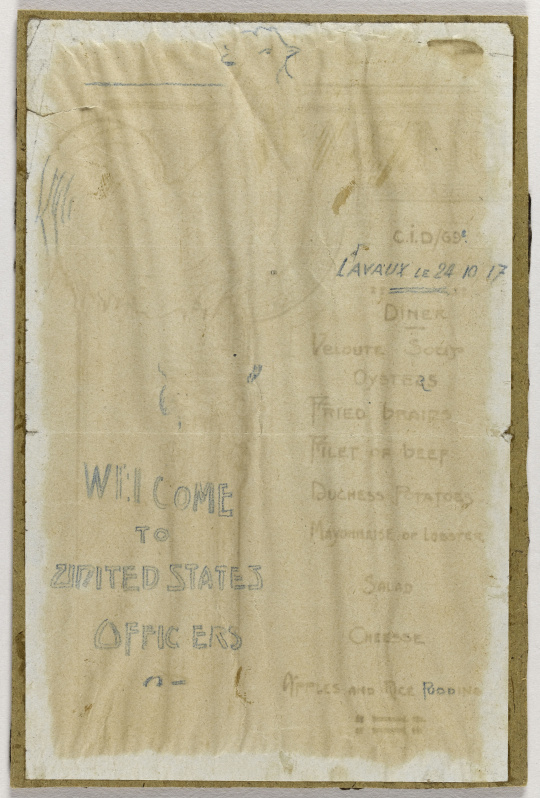 C.I.D/69e
LAVAUX LE 24 10 17
DINER
VELOUTE SOUP
OYSTERS
FRIED BRAIRS
FILET OF BEEF
DUCHESS POTATOES
MAYONNAISE OF LOBSTER
SALAD
CHEESSE
APPLES AND RICE PUDDING
WELCOME
TO
UNITED STATES
OFFICERS